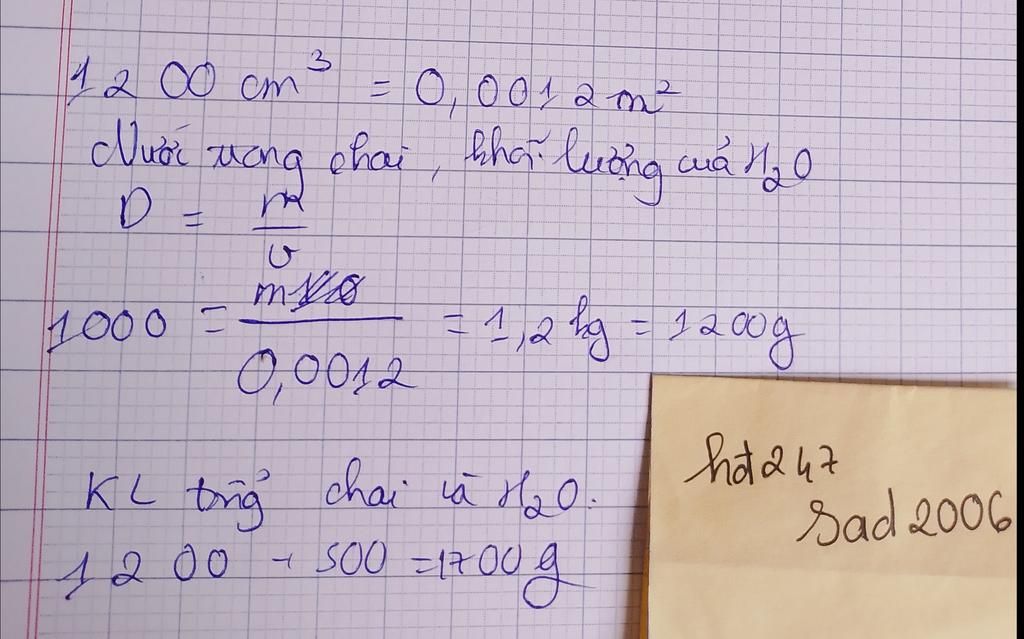 1200 cm³ = 0,0012 m²
Nước trong chai, khối lượng của H₂O
D = m/v
1000 = m/0,0012 = 1,2 kg = 1200g
KL tổng chai và H₂O:
1200 + 500 = 1700 g
hđ247
sad2006